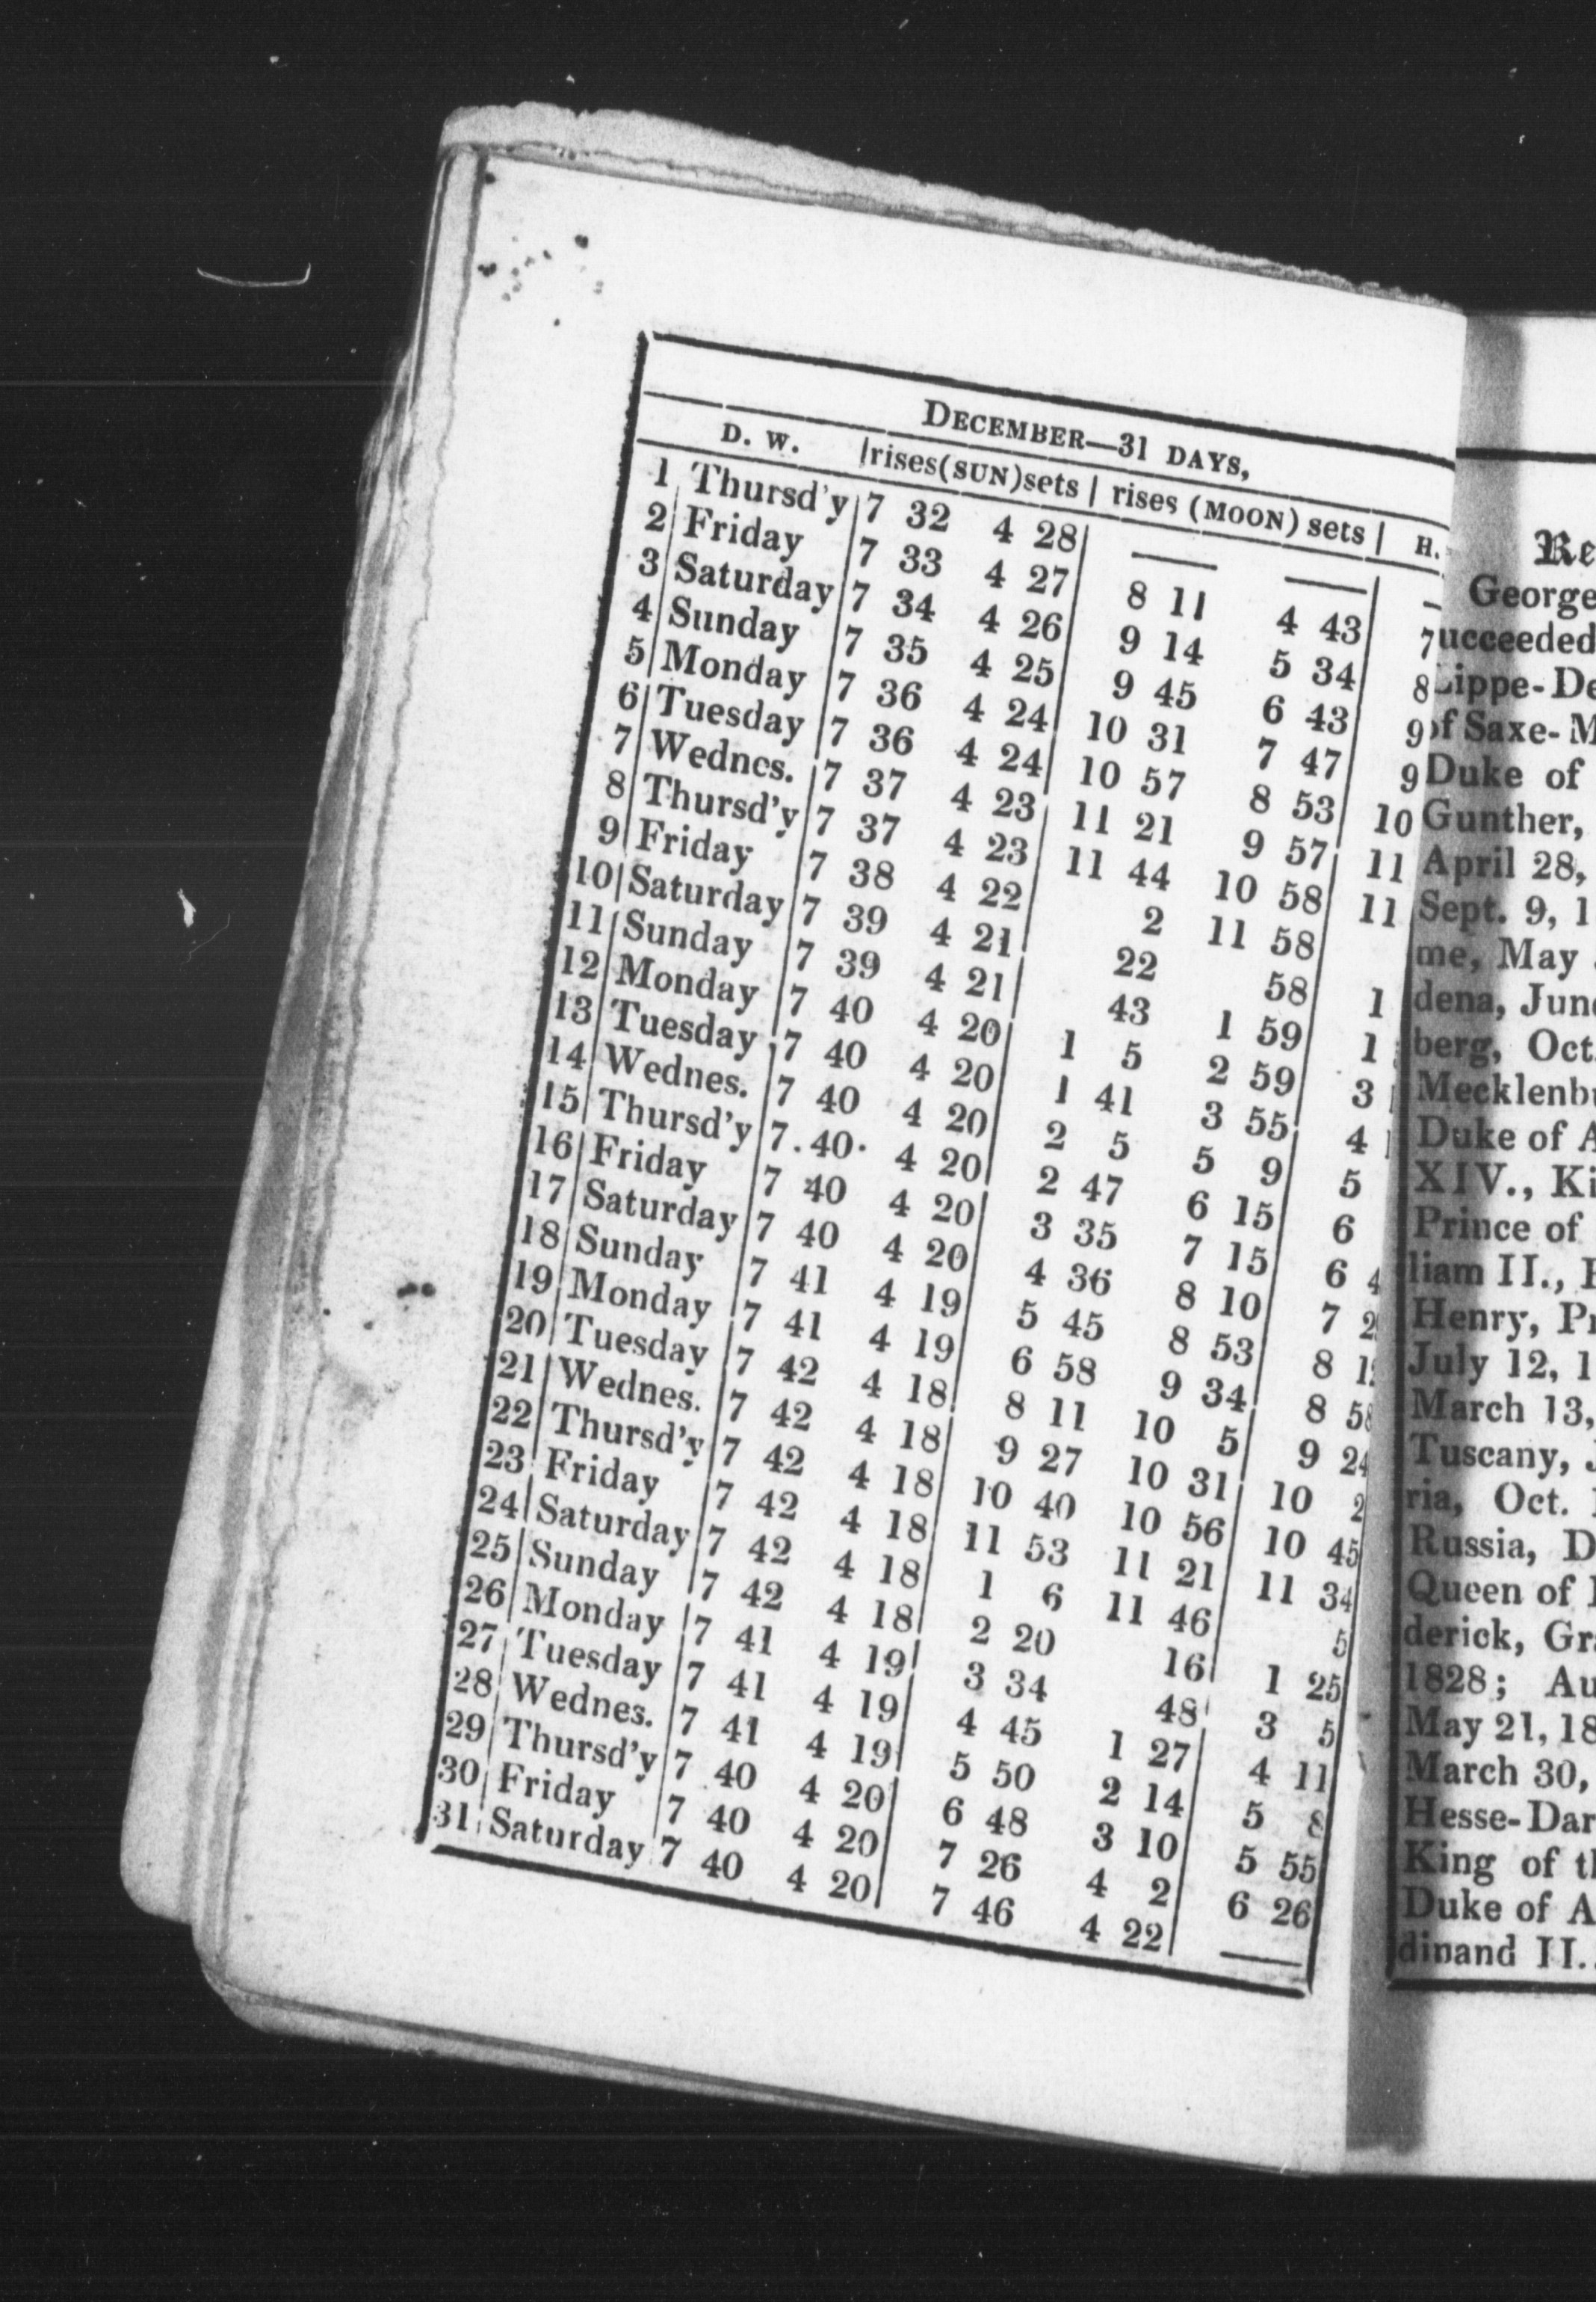 DECEMBER—31 DAYS,
D. W. |rises(SUN)sets | rises (MOON) sets | H.
1 Thursd'y 7 32 4 28 —— ——
2 Friday 7 33 4 27 8 11 4 43 7
3 Saturday 7 34 4 26 9 14 5 34 8
4 Sunday 7 35 4 25 9 45 6 43 9
5 Monday 7 36 4 24 10 31 7 47 9
6 Tuesday 7 36 4 24 10 57 8 53 10
7 Wednes. 7 37 4 23 11 21 9 57 11
8 Thursd'y 7 37 4 23 11 44 10 58 11
9 Friday 7 38 4 22 2 11 58
10 Saturday 7 39 4 21 22 58 1
11 Sunday 7 39 4 21 43 1 59 1
12 Monday 7 40 4 20 1 5 2 59 3
13 Tuesday 7 40 4 20 1 41 3 55 4
14 Wednes. 7 40 4 20 2 5 5 9 5
15 Thursd'y 7 40 4 20 2 47 6 15 6
16 Friday 7 40 4 20 3 35 7 15 6
17 Saturday 7 40 4 20 4 36 8 10 7
18 Sunday 7 41 4 19 5 45 8 53 8
19 Monday 7 41 4 19 6 58 9 34 8 58
20 Tuesday 7 42 4 18 8 11 10 5 9 24
21 Wednes. 7 42 4 18 9 27 10 31 10 2
22 Thursd'y 7 42 4 18 10 40 10 56 10 45
23 Friday 7 42 4 18 11 53 11 21 11 34
24 Saturday 7 42 4 18 1 6 11 46 5
25 Sunday 7 42 4 18 2 20 16 1 25
26 Monday 7 41 4 19 3 34 48 3 5
27 Tuesday 7 41 4 19 4 45 1 27 4 11
28 Wednes. 7 41 4 19 5 50 2 14 5 8
29 Thursd'y 7 40 4 20 6 48 3 10 5 55
30 Friday 7 40 4 20 7 26 4 2 6 26
31 Saturday 7 40 4 20 7 46 4 22 ——
Re
George
ucceeded
Lippe-De
of Saxe-M
Duke of
Gunther,
April 28,
Sept. 9, 1
me, May
dena, June
berg, Oct.
Mecklenbu
Duke of A
XIV., Ki
Prince of
liam II., E
Henry, Pr
July 12, 1
March 13,
Tuscany, J
ria, Oct.
Russia, D
Queen of
derick, Gr
1828; Au
May 21, 18
March 30,
Hesse-Dar
King of th
Duke of A
dinand II.